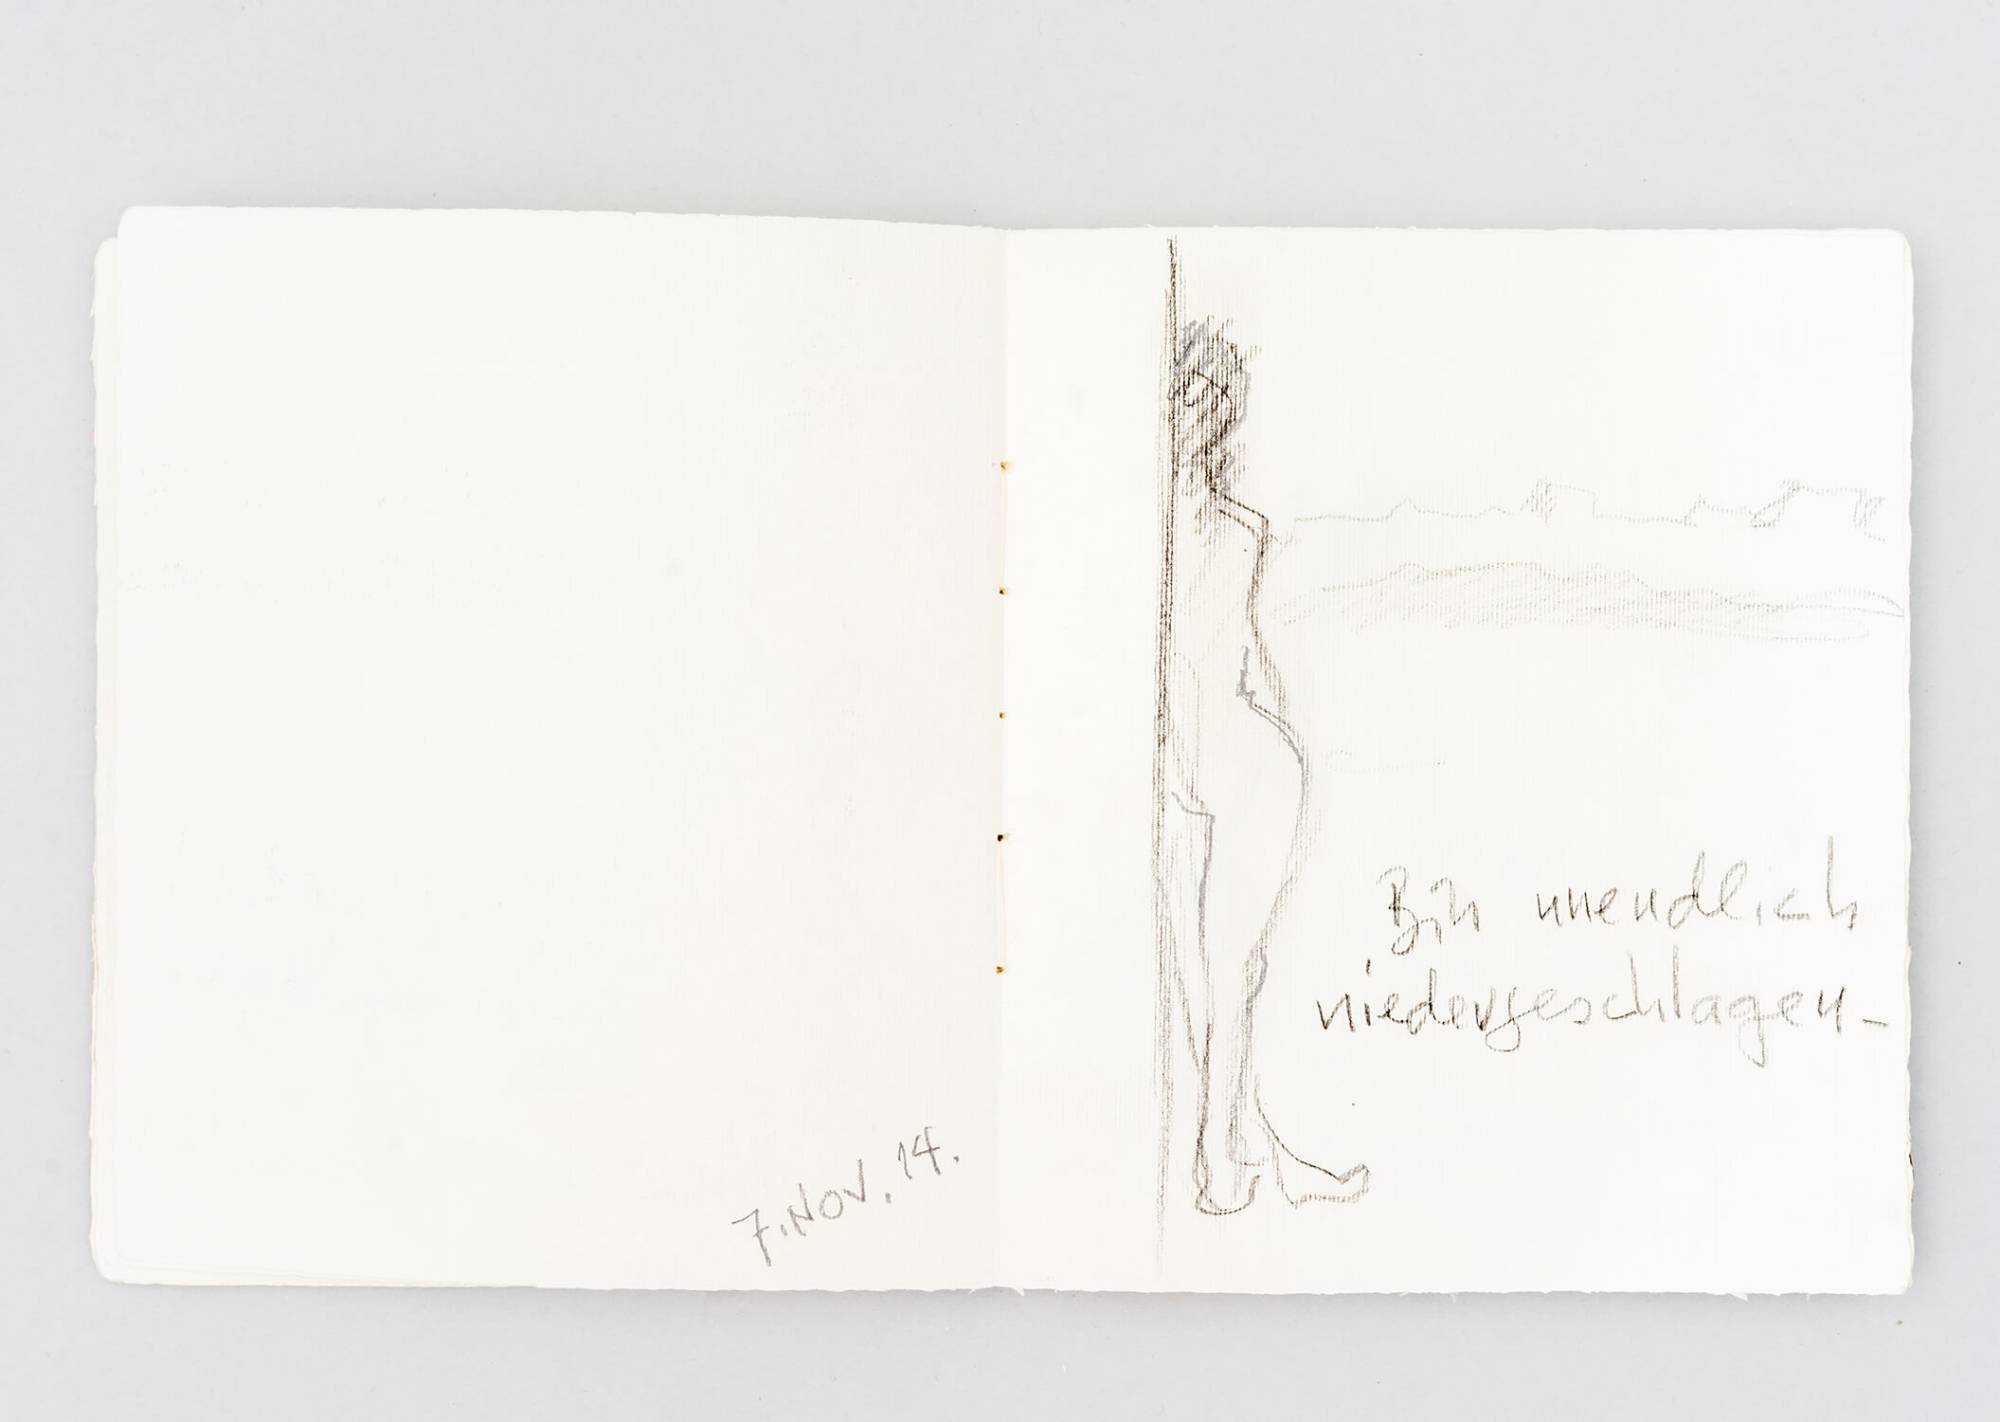 7. NOV. 14.
Bin unendlich
niedergeschlagen -